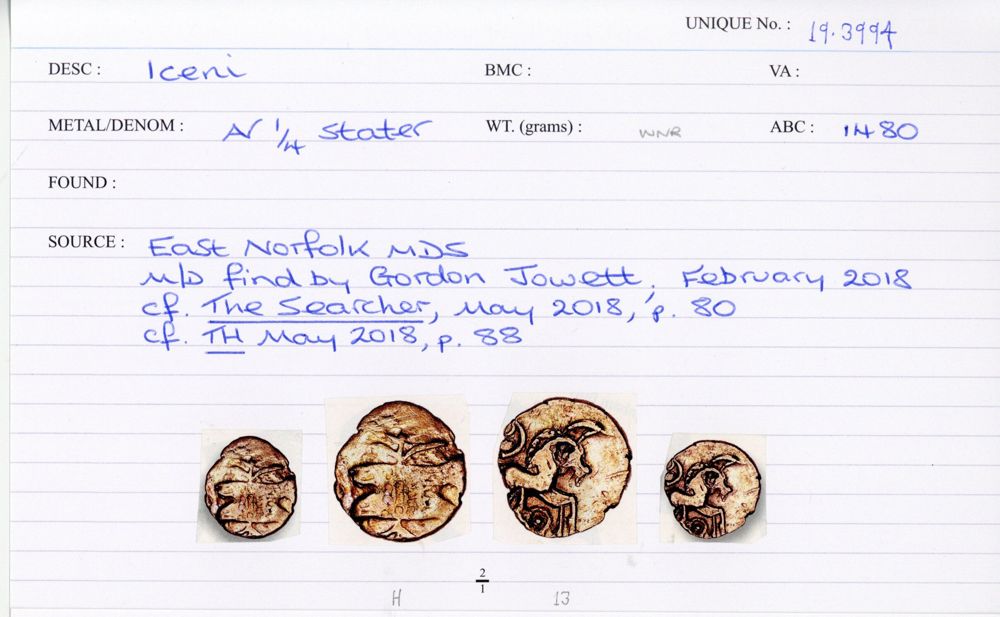 UNIQUE No. : 19.3994
DESC : Iceni BMC : VA :
METAL/DENOM : AV 1/4 stater WT. (grams) : WNR ABC : 1480
FOUND :
SOURCE : East Norfolk MDS
M/D find by Gordon Jowett, February 2018
cf. The Searcher, May 2018, p. 80
cf. TH May 2018, p. 88
2/1
H 13